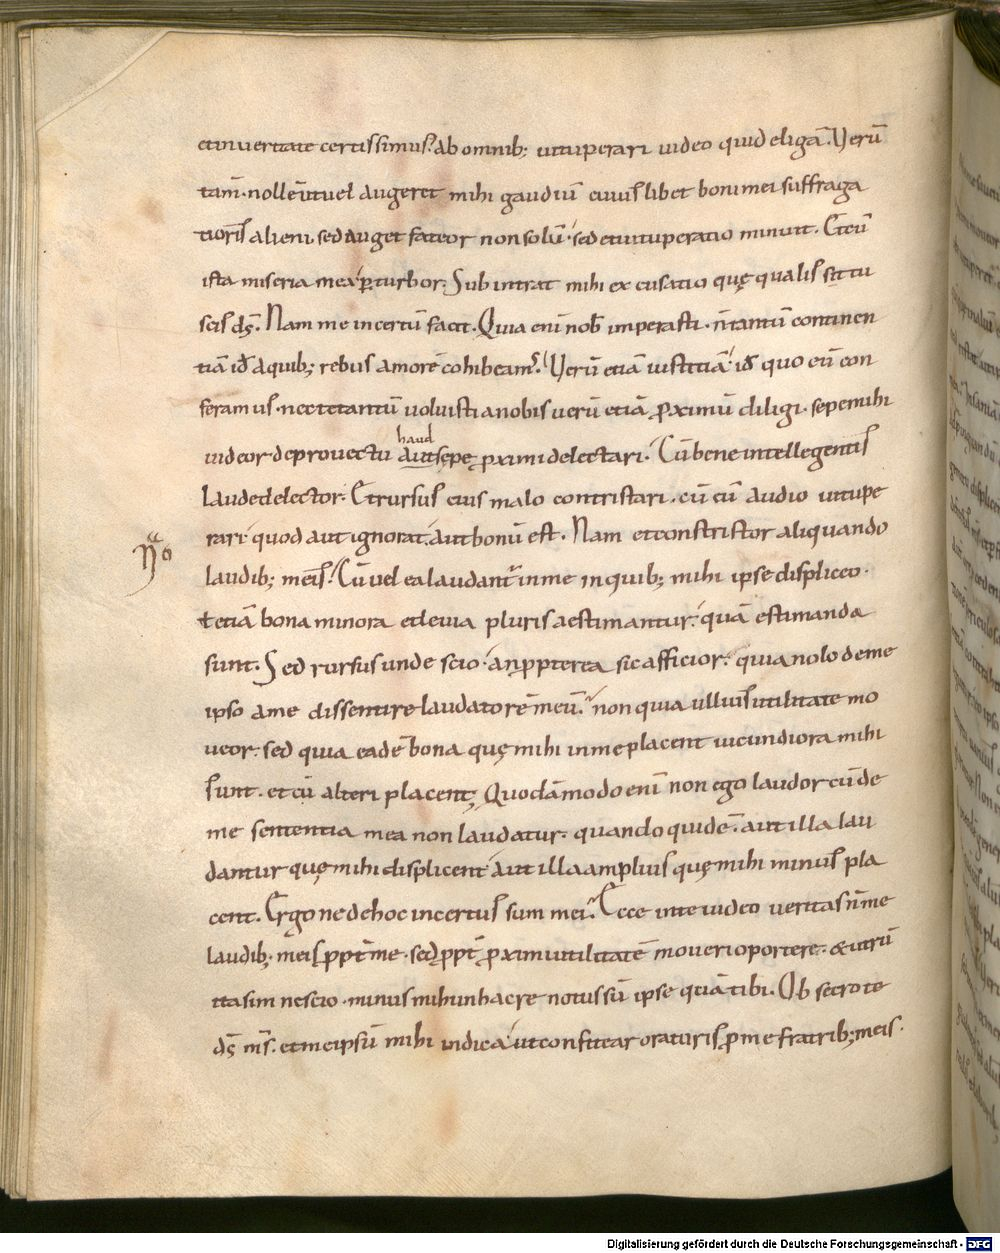 et in ueritate certissimus? ab omnib; uituperari uideo quid eligā. Verū
tam̄ nollē ut uel augeret mihi gaudiū cuiuslibet boni mei suffraga
tioris alieni sed auget fateor non solū sed et uituperatio minuit. Et cū
ista miseria mea ꝑturbor. Subintrat mihi excusatio quę qualis sit tu
scis ds̄. Nam me incertū facit. Quia eni nob̄ imperasti. n̄ tantū continen
tiā id̄ a quib; rebus amorē cohibeam᾽. Verū etiā iustitiā id̄ quo eū con
feramus. nec te tantū uoluisti a nobis uerū etiā ꝓximū diligi. sepe mihi
haud
uideor de prouectu aut sepe ꝓximi delectari. Cū bene intellegentis
laude delector. Et rursus eius malo contristari. cū eū audio uitupe
rari quod aut ignorat aut bonū est. Nam et constristor aliquando
laudib; meis. Cū uel ea laudant᾽ in me in quib; mihi ipse displiceo.
ł etiā bona minora et leuia pluris aestimantur quā estimanda
sunt. Sed rursus unde scio an ꝓpterea sic afficior. quia nolo de me
ipso a me dissentire laudatorē meū. non quia ullius utilitate mo
ueor. sed quia eadē bona quę mihi in me placent iucundiora mihi
sunt. et cū alteri placent; Quodāmodo eni non ego laudor cū de
me sententia mea non laudatur. quando quidē aut illa lau
dantur quę mihi displicent aut illa amplius quę mihi minus pla
cent. Ergo ne de hoc incertus sum mei. Ecce in te uideo ueritas n̄ me
laudib; meis ꝓpt̄ me. sed ꝓpt̄ ꝓximi utilitatē moueri oportere. & utrū
ita sim nescio. minus mihi in hac re notus sū ipse quā tibi. Obsecro te
ds̄ ms̄. et me ipsū mihi indica ut confitear oraturis ꝓ me fratrib; meis.
Digitalisierung gefördert durch die Deutsche Forschungsgemeinschaft - DFG